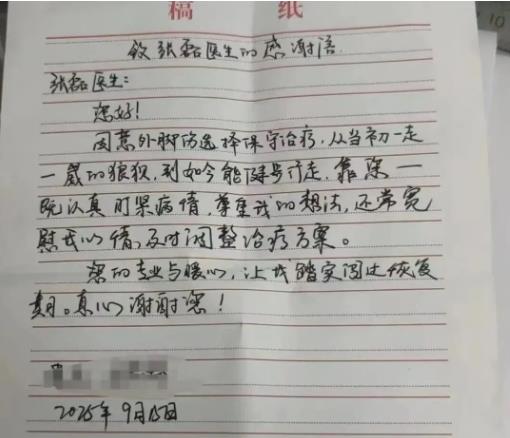 稿 纸
致张磊医生的感谢语
张磊医生:
您好!
因意外脚伤选择保守治疗,从当初一走
一崴的狼狈,到如今能健步行走,靠您一
既认真盯紧病情,尊重我的想法,还常宽
慰我心情,及时调整治疗方案。
您的专业与暖心,让我踏实闯过恢复
期。真心谢谢您!
2025年9月15日
10